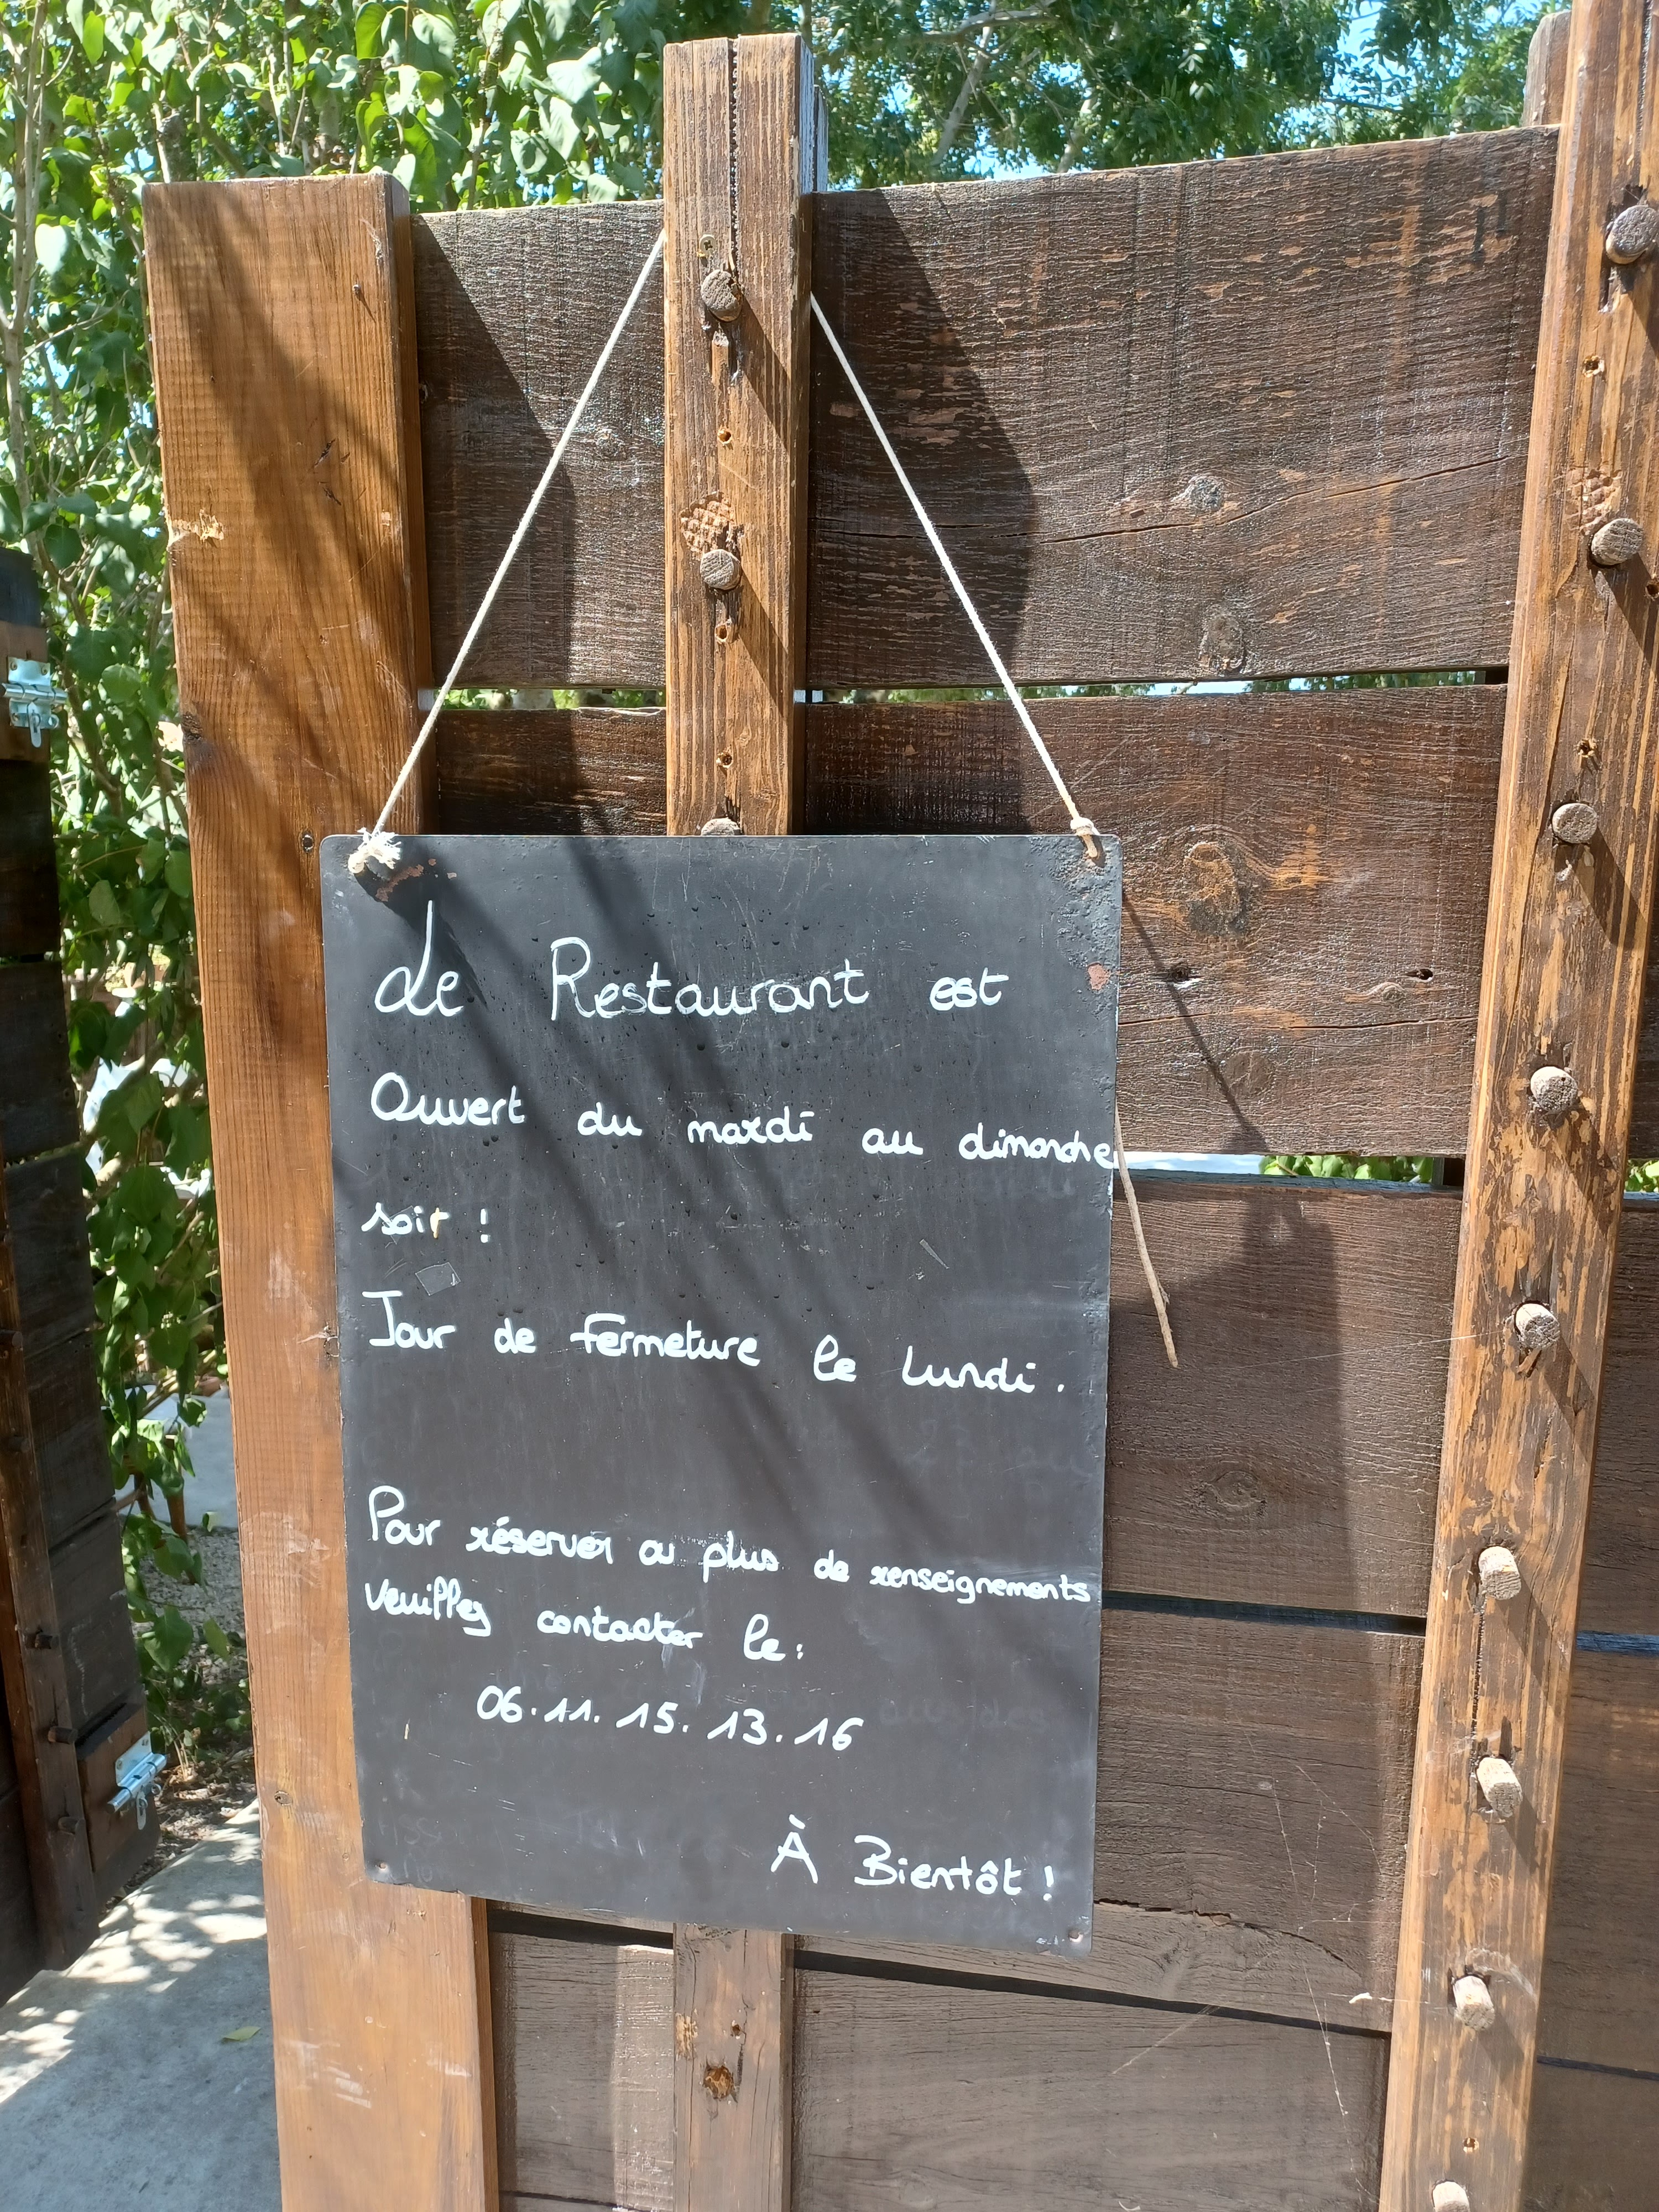 Le Restaurant est
Ouvert du mardi au dimanche
soir !
Jour de Fermeture le Lundi .
Pour réserver ou plus de renseignements
Veuillez contacter le :
06.11.15.13.16
À Bientôt !